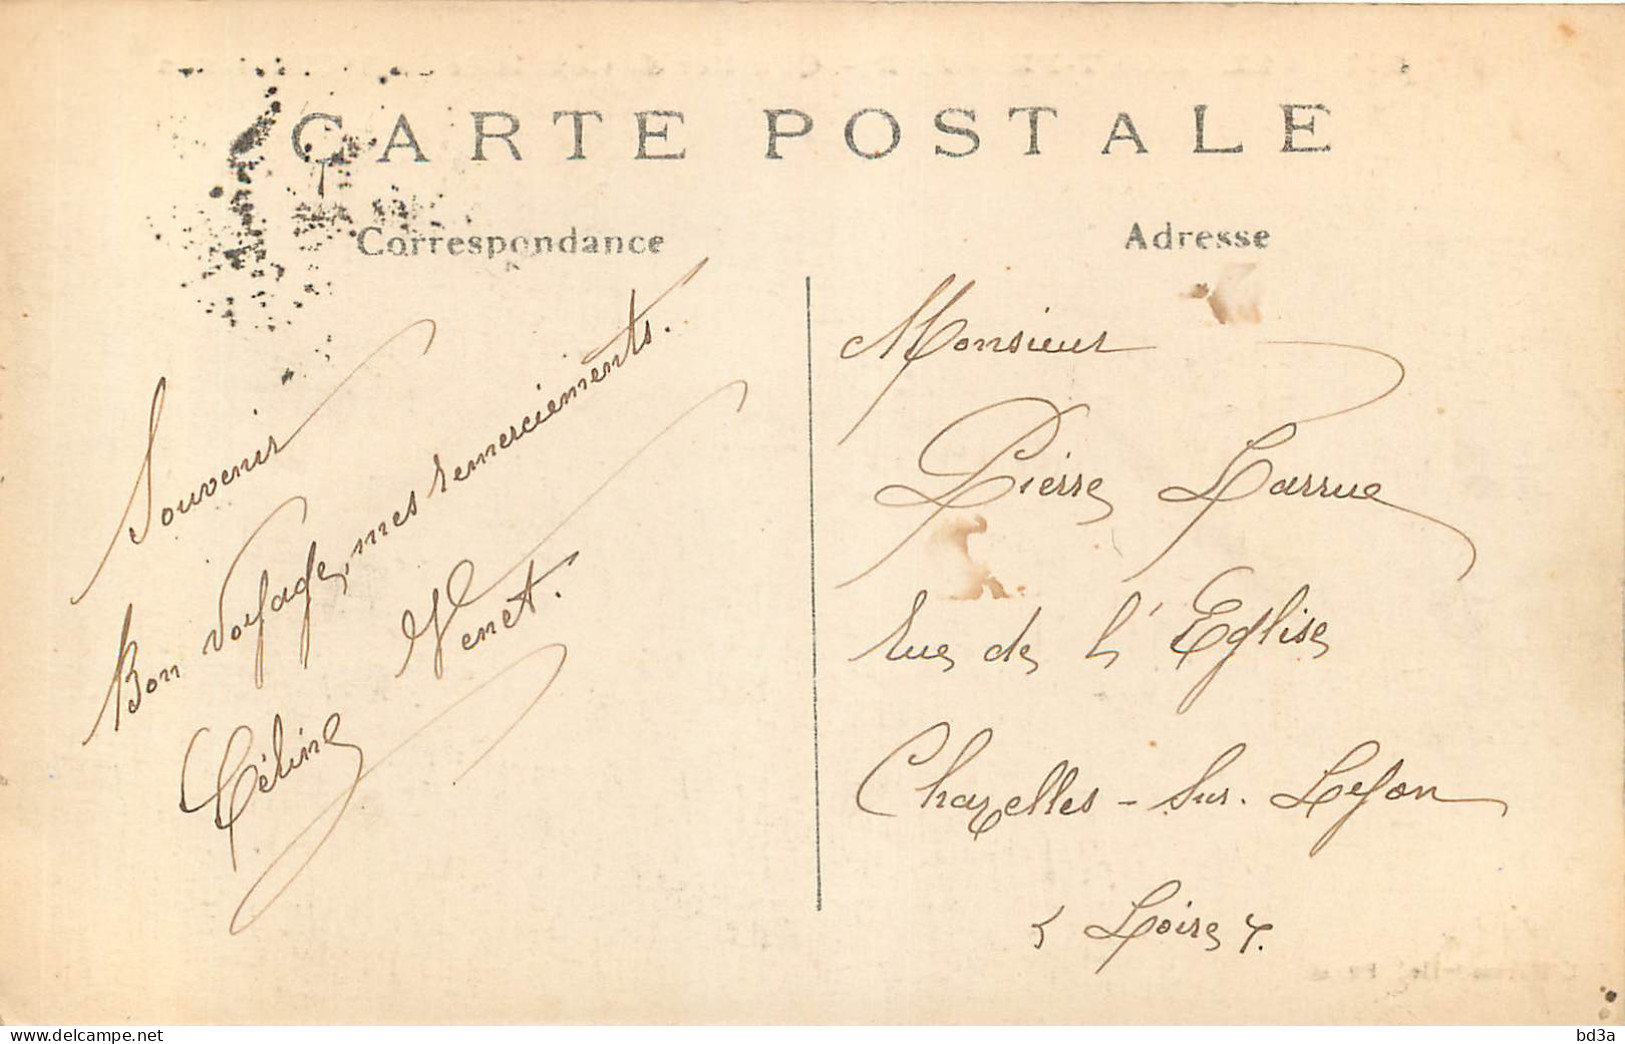 CARTE POSTALE
Correspondance
Adresse
Souvenir
Bon voyage, mes remerciements.
Céline Venet.
Monsieur
Pierre Larrue
Rue de l'Eglise
Chazelles - Sur. Lyon
( Loire ).
bd3a